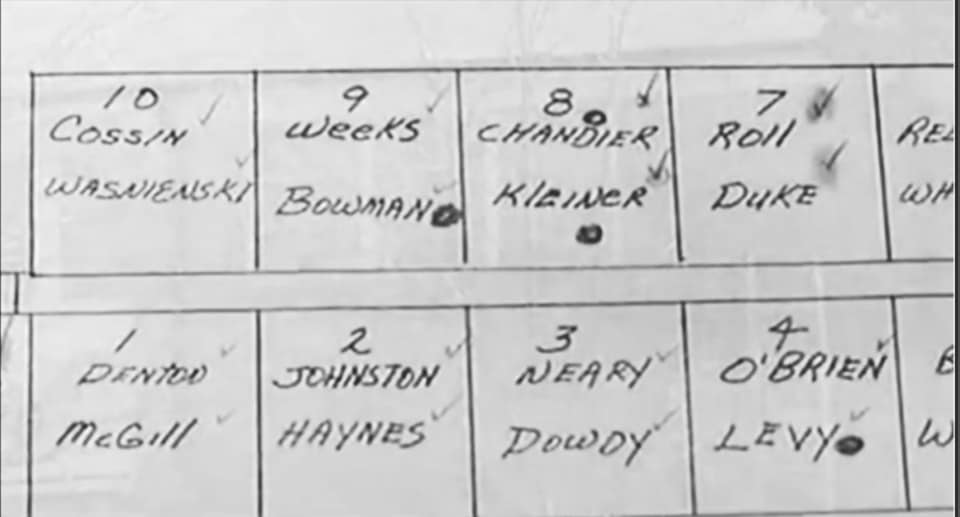 10
COSSIN
WASNIENSKI
9
WEEKS
BOWMAN
8
CHANDIER
KLEINER
7
ROLL
DUKE
REL
WH
1
DENTOD
McGILL
2
JOHNSTON
HAYNES
3
NEARY
DOWDY
4
O'BRIEN
LEVY
B
W